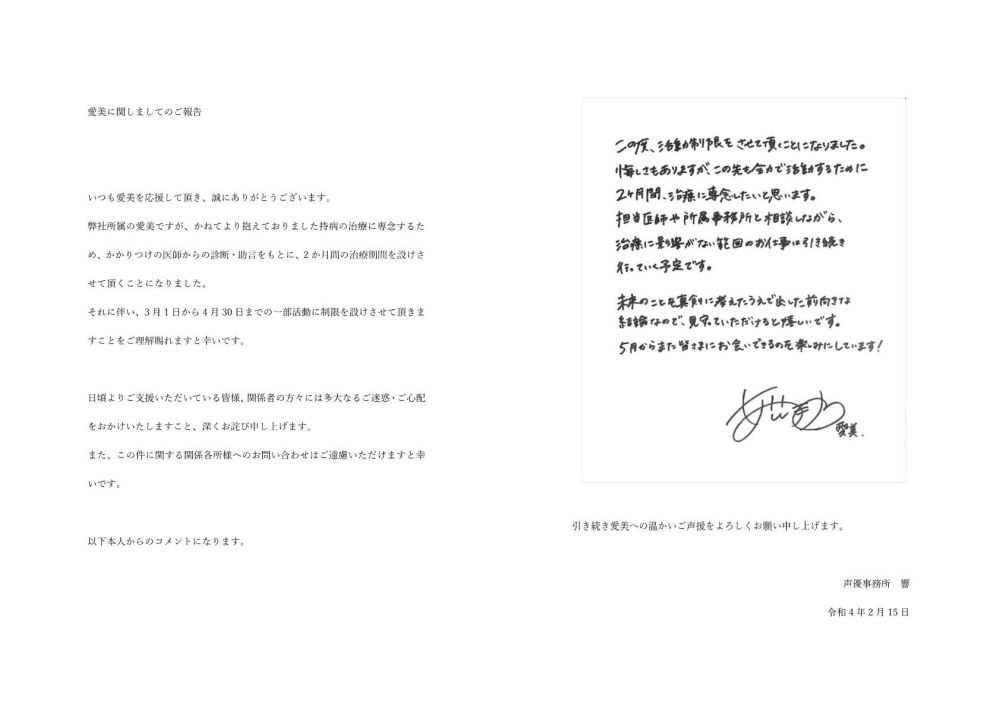 愛美に関しましてのご報告
いつも愛美を応援して頂き、誠にありがとうございます。
弊社所属の愛美ですが、かねてより抱えておりました持病の治療に専念するた
め、かかりつけの医師からの診断・助言をもとに、2か月間の治療期間を設けさ
せて頂くことになりました。
それに伴い、3月1日から4月30日までの一部活動に制限を設けさせて頂きま
すことをご理解賜れますと幸いです。
日頃よりご支援いただいている皆様、関係者の方々には多大なるご迷惑・ご心配
をおかけいたしますこと、深くお詫び申し上げます。
また、この件に関する関係各所様へのお問い合わせはご遠慮いただけますと幸
いです。
以下本人からのコメントになります。
この度、活動制限をさせて頂くことになりました。
悔しさもありますが、この先も全力で活動するために
2ヶ月間、治療に専念したいと思います。
担当医師や所属事務所と相談しながら、
治療に影響がない範囲のお仕事は引き続き
行っていく予定です。
未来のことも真剣に考えたうえで出した前向きな
結論なので、見守っていただけると嬉しいです。
5月からまた皆さまにお会いできるのを楽しみにしています!
愛美.
引き続き愛美への温かいご声援をよろしくお願い申し上げます。
声優事務所 響
令和4年2月15日